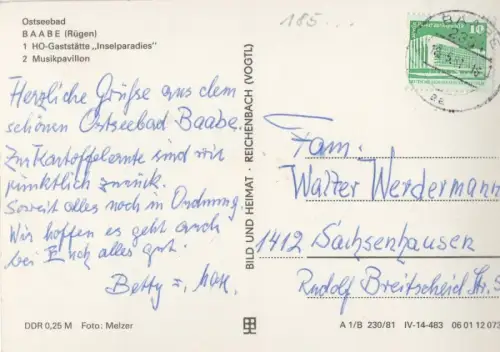 Ostseebad
BAABE (Rügen)
1 HO-Gaststätte „Inselparadies"
2 Musikpavillon
185...
10
BAABE
Herzliche Grüße aus dem
schönen Ostseebad Baabe.
Zur Kartoffelernte sind wir
pünktlich zurück.
Soweit alles noch in Ordnung
Wir hoffen es geht auch
bei Euch alles gut.
Betty u. Max.
BILD UND HEIMAT · REICHENBACH (VOGTL)
Fam.
Walter Werdermann
1412 Sachsenhausen
Rudolf Breitscheid Str. 5
DDR 0,25 M Foto: Melzer
A 1/B 230/81 IV-14-483 06 01 12 073